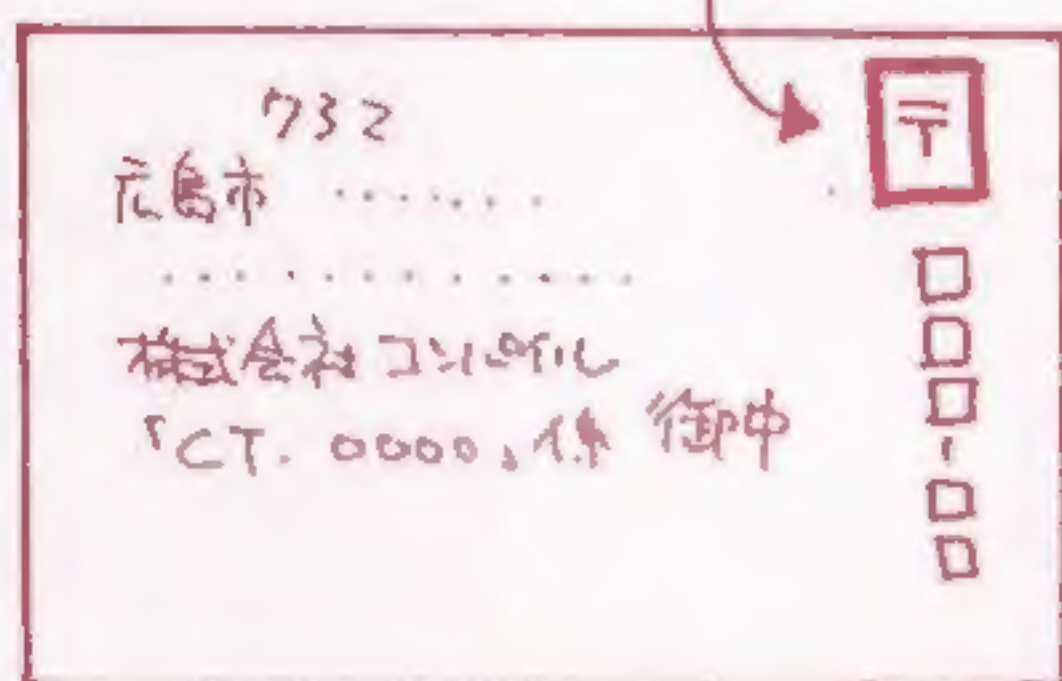 732
広島市 .......
.............
株式会社コンパイル
「CT. 0000」係 御中
〒